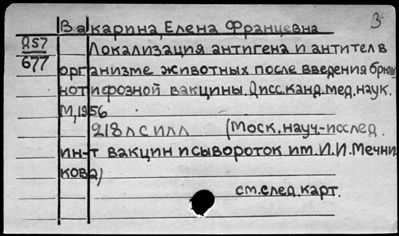 Вакарина, Елена Францевна
3
Д57
677
Локализация антигена и антител в
организме животных после введения брюш
нотифозной вакцины. Дисс. канд. мед. наук.
М, 1956
218 л с илл (Моск. науч.-послед.
ин-т вакцин и сывороток им. И.И. Мечни
кова)
см. след. карт.